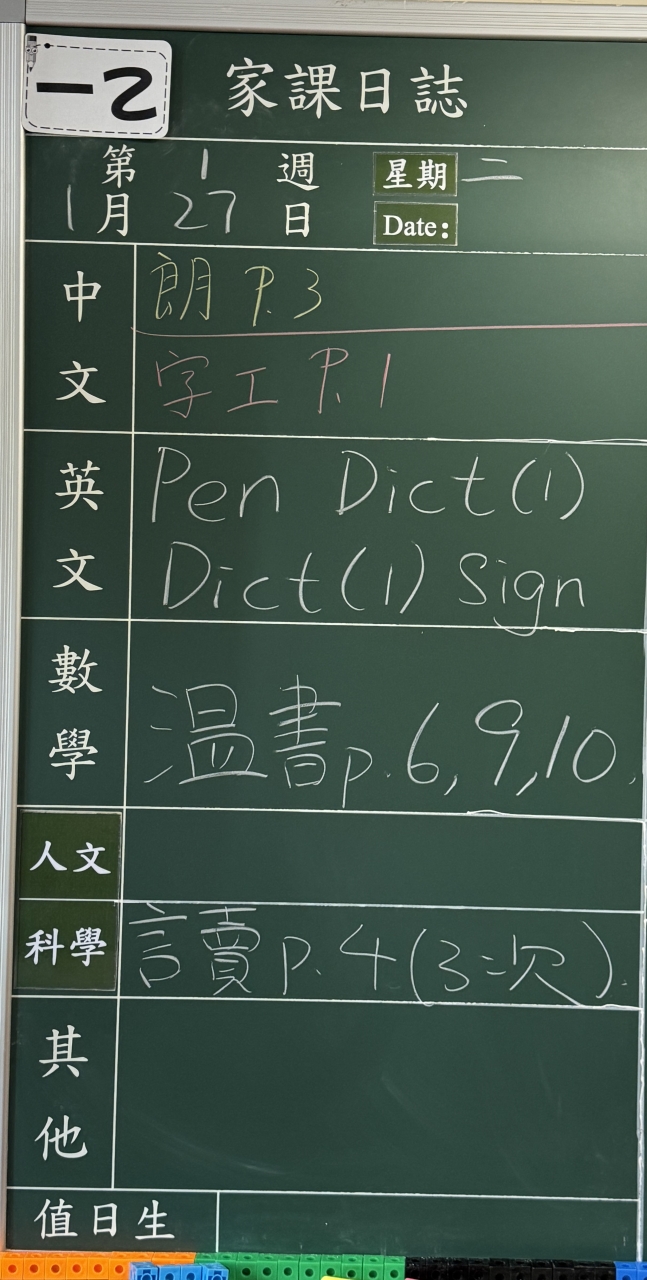 一乙
家課日誌
第 1 週 星期 二
1 月 27 日 Date:
中文
朗 P.3
字工 P.1
英文
Pen Dict(1)
Dict(1) Sign
數學
溫書p.6,9,10.
人文
科學
讀p.4(3次).
其他
值日生